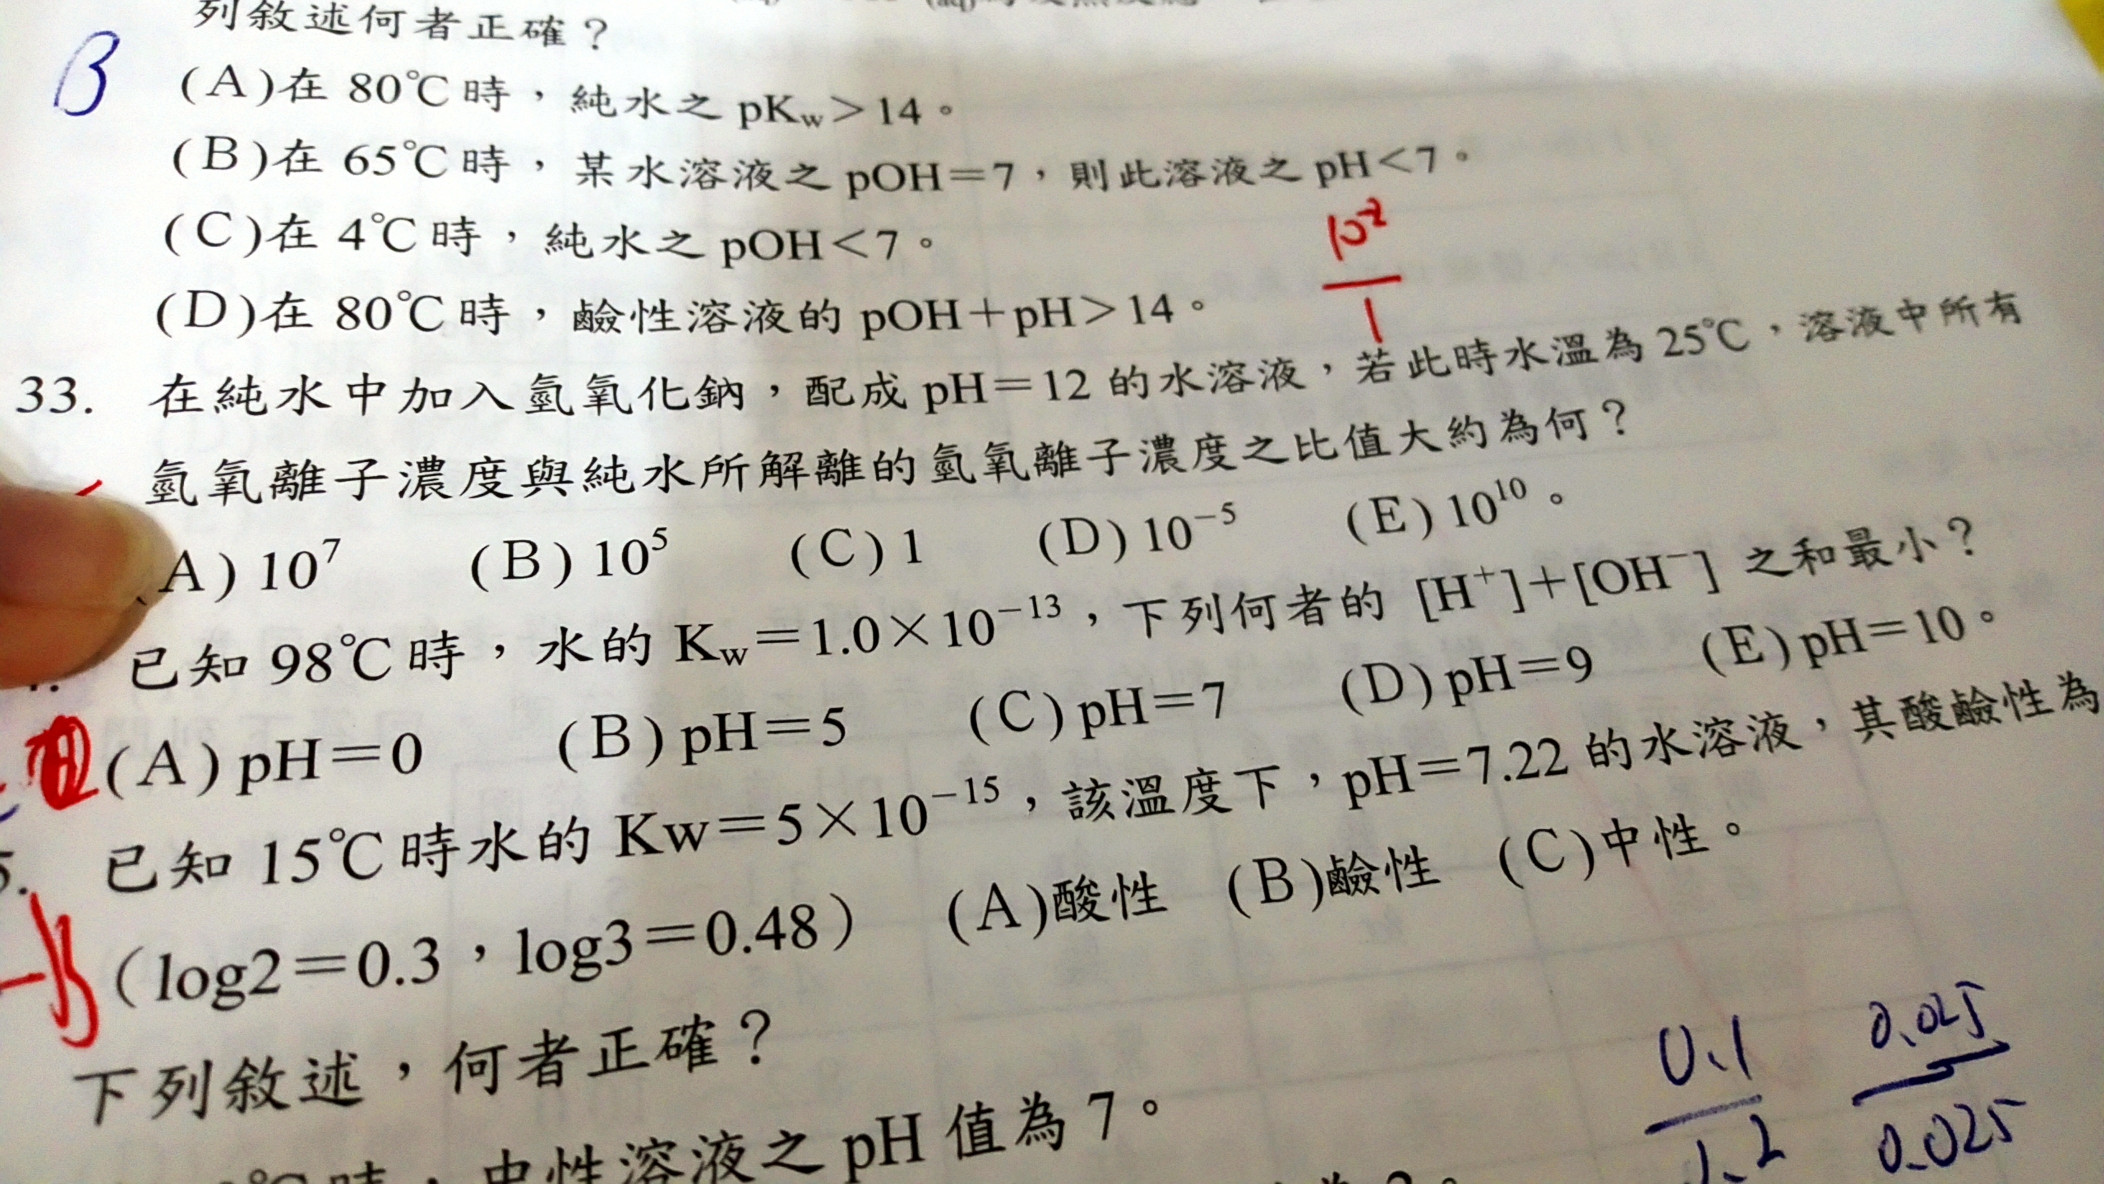 列敘述何者正確？
B
(A)在 80℃時，純水之 pKw＞14。
(B)在 65℃時，某水溶液之 pOH＝7，則此溶液之 pH＜7。
(C)在 4℃時，純水之 pOH＜7。
10⁻²
1
(D)在 80℃時，鹼性溶液的 pOH＋pH＞14。
33. 在純水中加入氫氧化鈉，配成 pH＝12 的水溶液，若此時水溫為 25℃，溶液中所有
氫氧離子濃度與純水所解離的氫氧離子濃度之比值大約為何？
A) 10⁷ (B) 10⁵ (C) 1 (D) 10⁻⁵ (E) 10¹⁰。
已知 98℃時，水的 Kw＝1.0×10⁻¹³，下列何者的 [H⁺]＋[OH⁻] 之和最小？
(A) pH＝0 (B) pH＝5 (C) pH＝7 (D) pH＝9 (E) pH＝10。
5. 已知 15℃時水的 Kw＝5×10⁻¹⁵，該溫度下，pH＝7.22 的水溶液，其酸鹼性為
（log2＝0.3，log3＝0.48） (A)酸性 (B)鹼性 (C)中性。
下列敘述，何者正確？
0.1
1.2
0.025
0.025
℃時，中性溶液之 pH 值為 7。